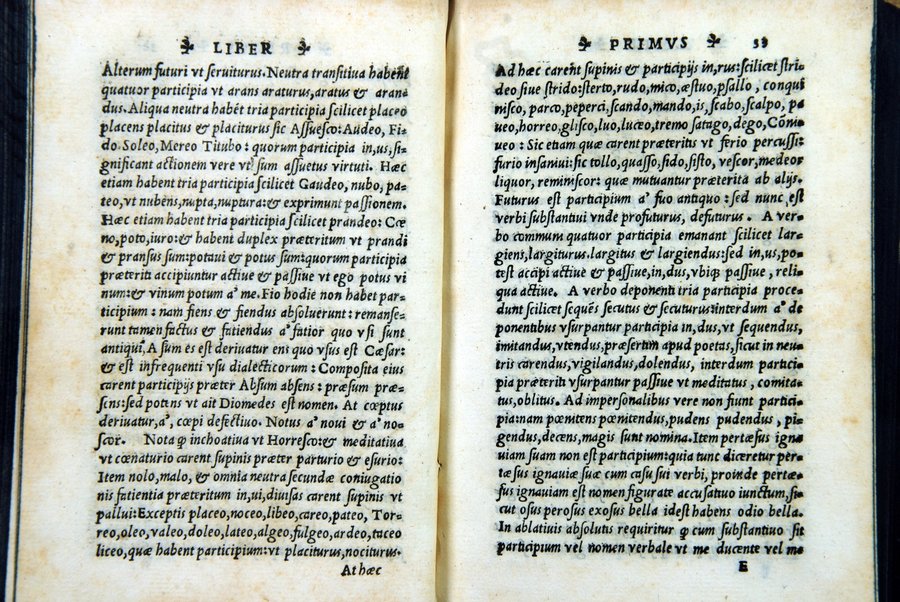 LIBER
Alterum futuri vt seruiturus. Neutra transitiua habent
quatuor participia vt arans araturus, aratus & aran=
dus. Aliqua neutra habēt tria participia scilicet placeo
placens placitus & placiturus sic Assuesco: Audeo, Fi=
do Soleo, Mereo Titubo: quorum participia in, us, si=
gnificant actionem vere vt sum assuetus virtuti. Hæc
etiam habent tria participia scilicet Gaudeo, nubo, pa=
teo, vt nubens, nupta, nuptura: & exprimunt passionem.
Hæc etiam habent tria participia scilicet prandeo: Cœ=
no, poto, iuro: & habent duplex præteritum vt prandi
& pransus sum: potaui & potus sum: quorum participia
præteriti accipiuntur actiue & passiue vt ego potus vi
num: & vinum potum a' me. Fio hodie non habet par=
ticipium: nam fiens & fiendus absoluerunt: remanse=
runt tamen factus & fatiendus a' fatior quo vsi sunt
antiqui, A sum es est deriuatur ens quo vsus est Cæsar:
& est infrequenti vsu dialecticorum: Composita eius
carent participijs præter Absum absens: præsum præ=
sens: sed potens vt ait Diomedes est nomen. At cœptus
deriuatur, a' cœpi defectiuo. Notus a' noui & a' no=
scor. Nota ꝙ inchoatiua vt Horresco: & meditatiua
vt cœnaturio carent supinis præter parturio & esurio:
Item nolo, malo, & omnia neutra secundæ coniugatio
nis fatientia præteritum in, ui, diuisas carent supinis vt
pallui: Exceptis placeo, noceo, libeo, careo, pateo, Tor=
reo, oleo, valeo, doleo, lateo, algeo, fulgeo, ardeo, taceo
liceo, quæ habent participium: vt placiturus, nociturus.
At hæc
PRIMVS 33
Ad hæc carent supinis & participijs in, rus: scilicet stri=
deo siue strido: sterto, rudo, mico, æstuo, psallo, conqui
nisco, parco, peperci, scando, mando, is, scabo, scalpo, pa
ueo, horreo, glisco, luo, luceo, tremo satago, dego, Cōni=
ueo: Sic etiam quæ carent præteritus vt ferio percussi:
furio insaniui: sic tollo, quasso, fido, sisto, vescor, medeor
liquor, reminiscor: quæ mutuantur præterita ab alijs.
Futurus est participium a' fuo antiquo: sed nunc est
verbi substantiui vnde profuturus, defuturus. A ver=
bo communi quatuor participia emanant scilicet lar=
giens, largiturus. largitus & largiendus: sed in, us, po=
test accipi actiue & passiue, in, dus, vbiqꝫ passiue, reli=
qua actiue. A verbo deponenti tria participia proce=
dunt scilicet sequēs secutus & secuturus: interdum a' de
ponentibus vsurpantur participia in, dus, vt sequendus,
imitandus, vtendus, præsertim apud poetas, sicut in neu=
tris carendus, vigilandus, dolendus, interdum partici=
pia præteriti vsurpantur passiue vt meditatus, comita=
tus, oblitus. Ad impersonalibus vere non fiunt partici=
pia: nam pœnitens pœnitendus, pudens pudendus, pi=
gendus, decens, magis sunt nomina. Item pertæsus igna=
uiam suam non est participium: quia tunc diceretur per=
tæsus ignauiæ suæ cum casu sui verbi, proinde pertæ=
sus ignauiam est nomen figurate accusatiuo iunctum, si=
cut osus perosus exosus bella idest habens odio bella=
In ablatiuis absolutis requiritur ꝙ cum substantiuo sit
participium vel nomen verbale vt me ducente vel me
E